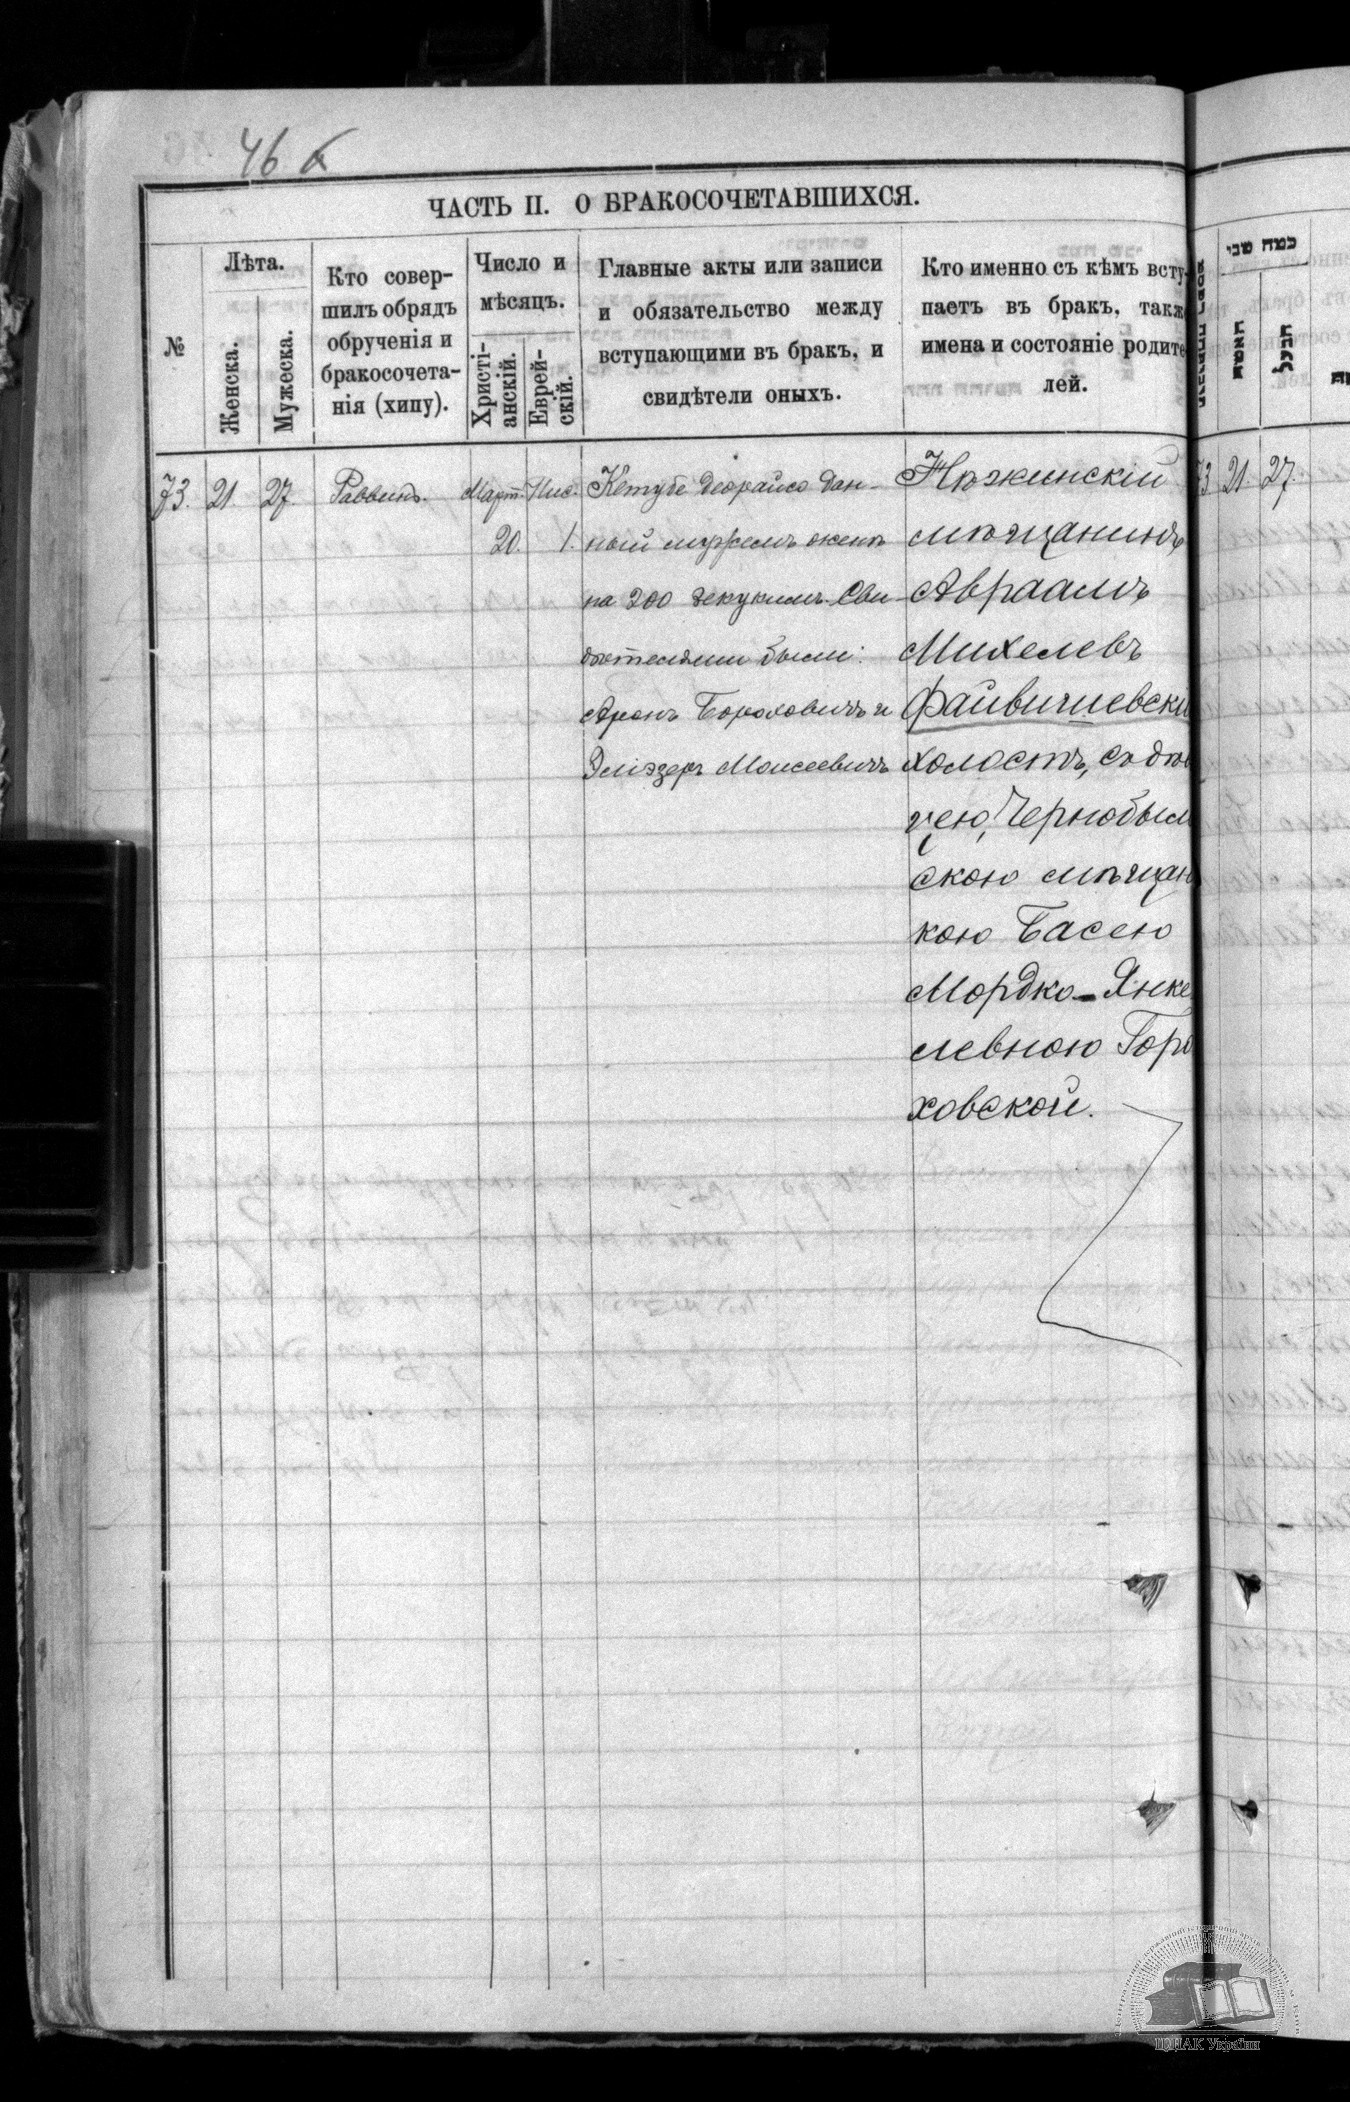 46 б
ЧАСТЬ II. О БРАКОСОЧЕТАВШИХСЯ.
№
Лѣта.
Женска.
Мужеска.
Кто совер-
шилъ обрядъ
обрученія и
бракосочета-
нія (хипу).
Число и
мѣсяцъ.
Христі-
анскій.
Еврей-
скій.
Главные акты или записи
и обязательство между
вступающими въ бракъ, и
свидѣтели оныхъ.
Кто именно съ кѣмъ всту-
паетъ въ бракъ, также
имена и состояніе родите-
лей.
73. 21. 27. Раввинъ. Март. Нис.
20. 1.
Кетубе деорайсо дан-
ный мужемъ женѣ
на 200 зекукимъ. Сви-
дѣтелями были:
Аронъ Бороховичъ и
Эліэзеръ Моисеевичъ
Нѣжинскій
мѣщанинъ
Авраамъ
Михелевъ
Файвишевски
холостъ, съ дѣв
цею, Чернобыл
скою мѣщан
кою Басею
Мордко-Янке
левною Горо
ховской.
כמה שני
האשה
הבעל
73 21. 27.
ЦДІАК України